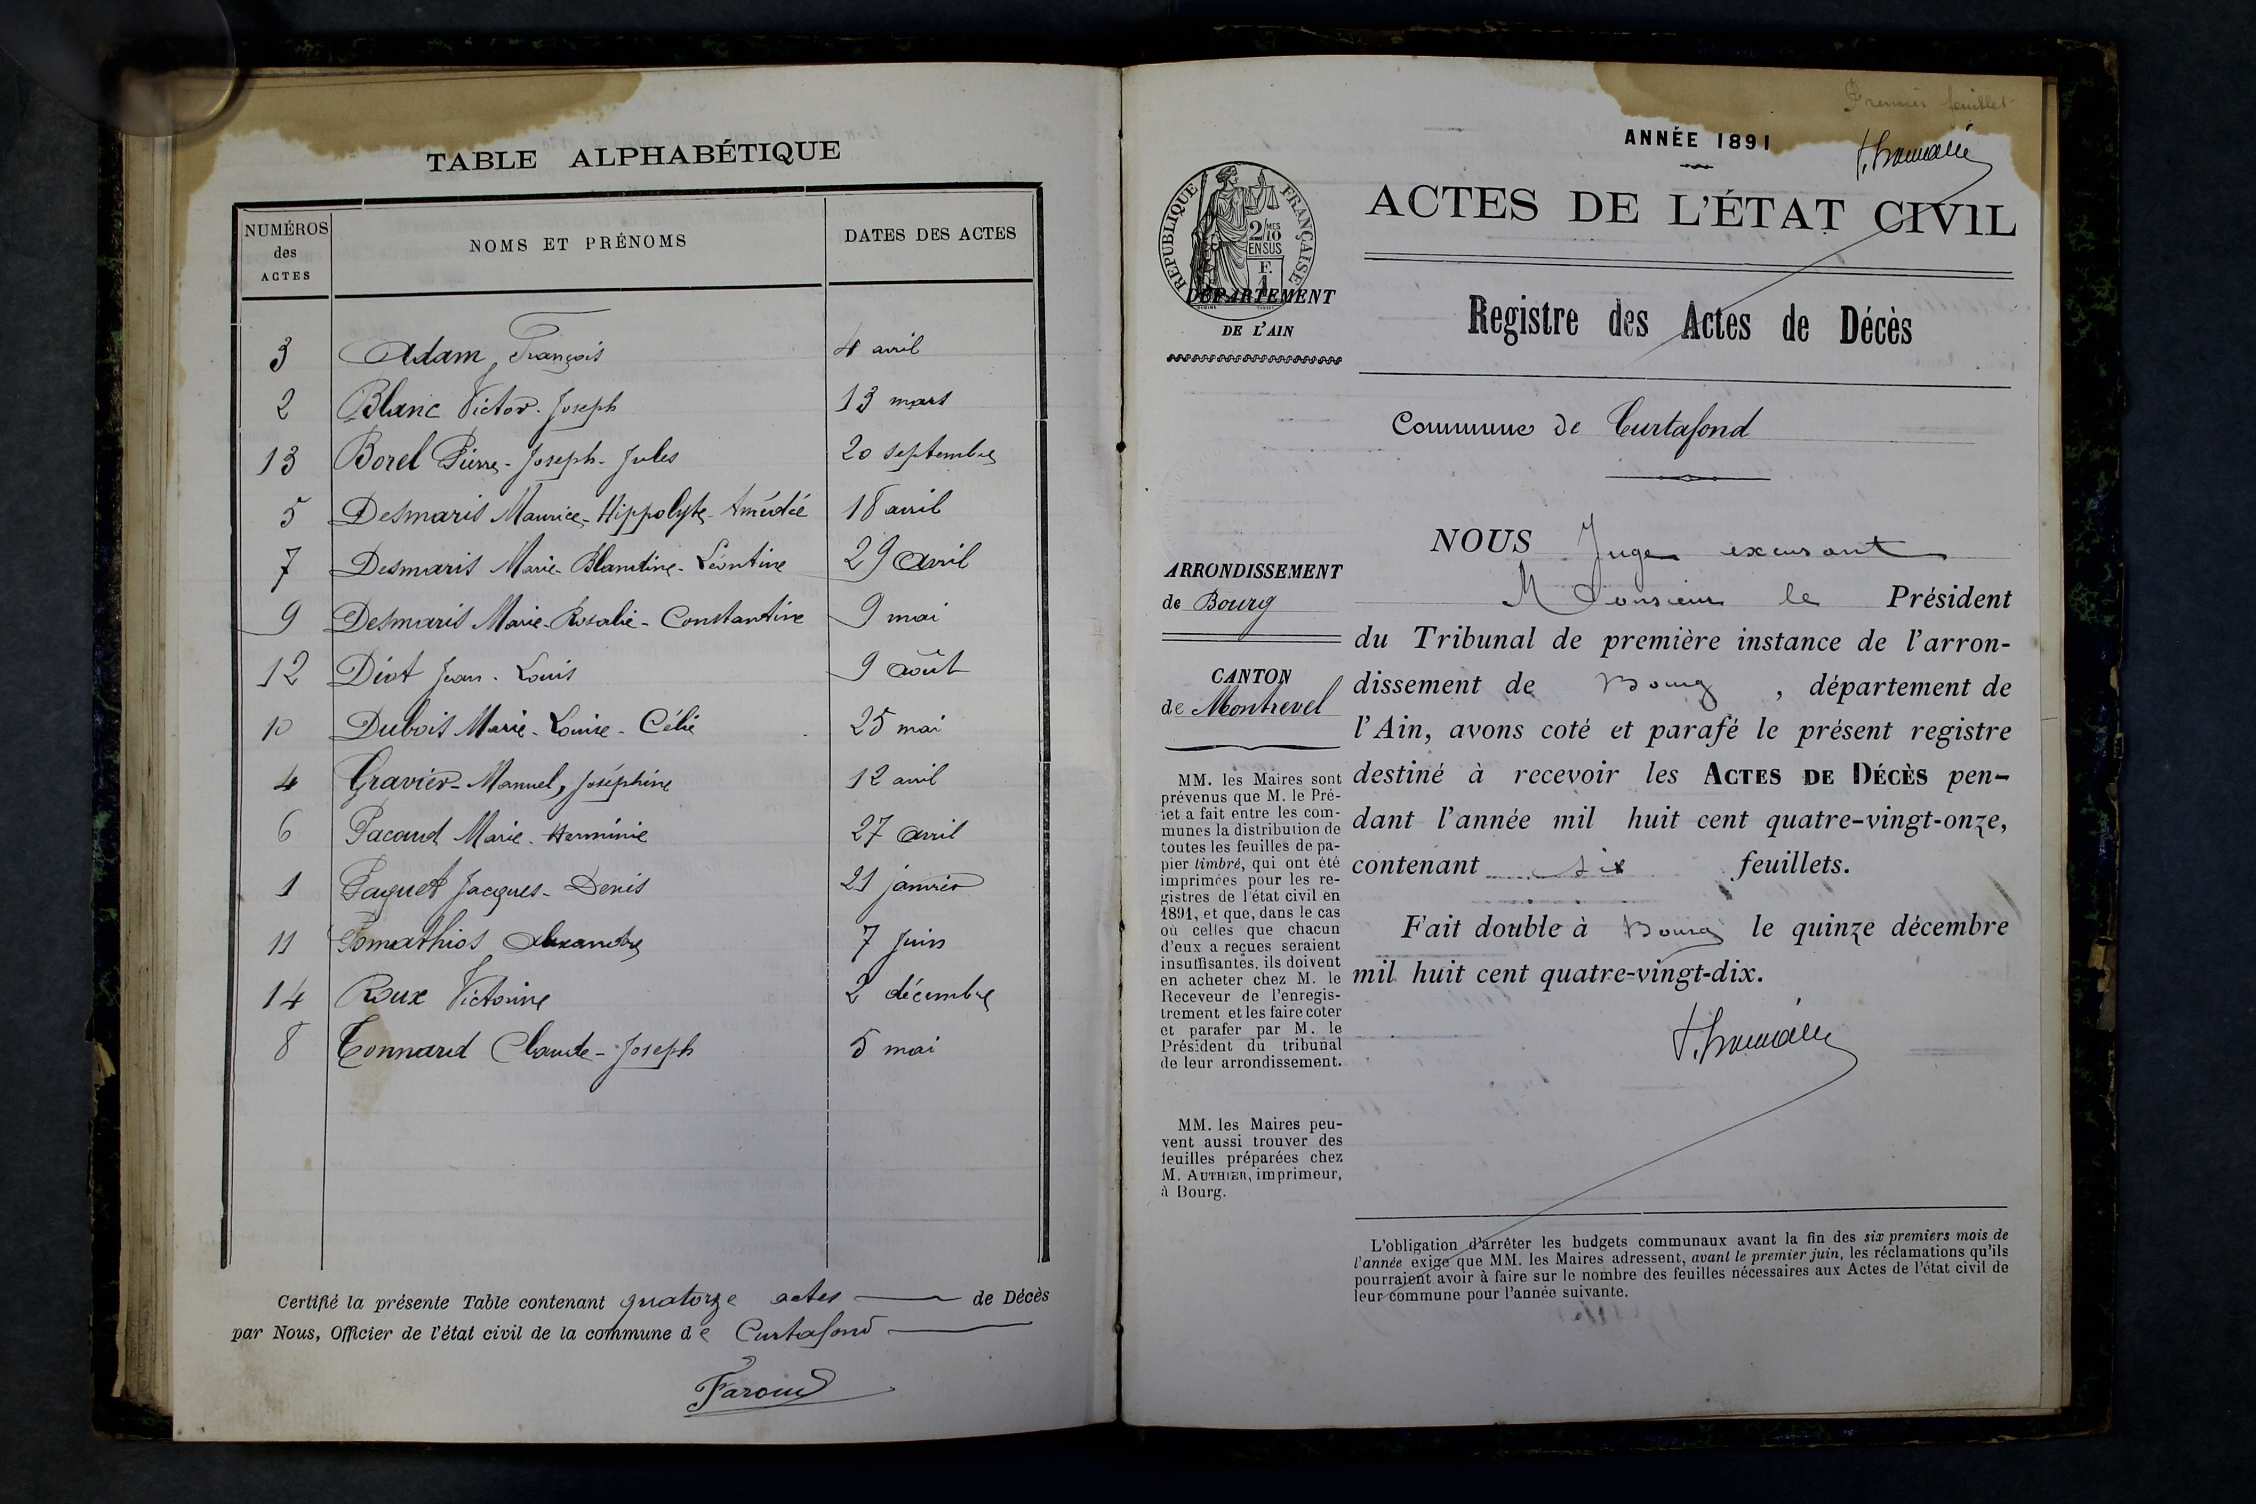 TABLE ALPHABÉTIQUE
NUMÉROS des ACTES NOMS ET PRÉNOMS DATES DES ACTES
3 Adam, François 4 avril
2 Blanc Victor-Joseph 13 mars
13 Borel Pierre-Joseph-Jules 20 septembre
5 Desmaris Maurice-Hippolyte-Amédée 18 avril
7 Desmaris Marie-Blandine-Léontine 29 avril
9 Desmaris Marie-Rosalie-Constantine 9 mai
12 Diot Jean-Louis 9 août
10 Dubois Marie-Louise-Célie 25 mai
4 Gravier-Manuel, Joséphine 12 avril
6 Pacoud Marie-Herminie 27 avril
1 Paquet Jacques-Denis 21 janvier
11 Pomathios Alexandre 7 juin
14 Roux Victorine 2 décembre
8 Tonnard Claude-Joseph 5 mai
Certifié la présente Table contenant quatorze actes de Décès
par Nous, Officier de l'état civil de la commune de Curtafond
Premier feuillet
ANNÉE 1891
ACTES DE L'ÉTAT CIVIL
RÉPUBLIQUE FRANÇAISE
2/10 MES
EN SUS
F. 1
DÉPARTEMENT
DE L'AIN
Registre des Actes de Décès
Commune de Curtafond
ARRONDISSEMENT
de Bourg
CANTON
de Montrevel
MM. les Maires sont
prévenus que M. le Pré-
fet a fait entre les com-
munes la distribution de
toutes les feuilles de pa-
pier timbré, qui ont été
imprimées pour les re-
gistres de l'état civil en
1891, et que, dans le cas
où celles que chacun
d'eux a reçues seraient
insuffisantes, ils doivent
en acheter chez M. le
Receveur de l'enregis-
trement et les faire coter
et parafer par M. le
Président du tribunal
de leur arrondissement.
MM. les Maires peu-
vent aussi trouver des
feuilles préparées chez
M. AUTHIER, imprimeur,
à Bourg.
NOUS Juge excusant
Monsieur le Président
du Tribunal de première instance de l'arron-
dissement de Bourg, département de
l'Ain, avons coté et parafé le présent registre
destiné à recevoir les ACTES DE DÉCÈS pen-
dant l'année mil huit cent quatre-vingt-onze,
contenant six feuillets.
Fait double à Bourg le quinze décembre
mil huit cent quatre-vingt-dix.
L'obligation d'arrêter les budgets communaux avant la fin des six premiers mois de
l'année exige que MM. les Maires adressent, avant le premier juin, les réclamations qu'ils
pourraient avoir à faire sur le nombre des feuilles nécessaires aux Actes de l'état civil de
leur commune pour l'année suivante.